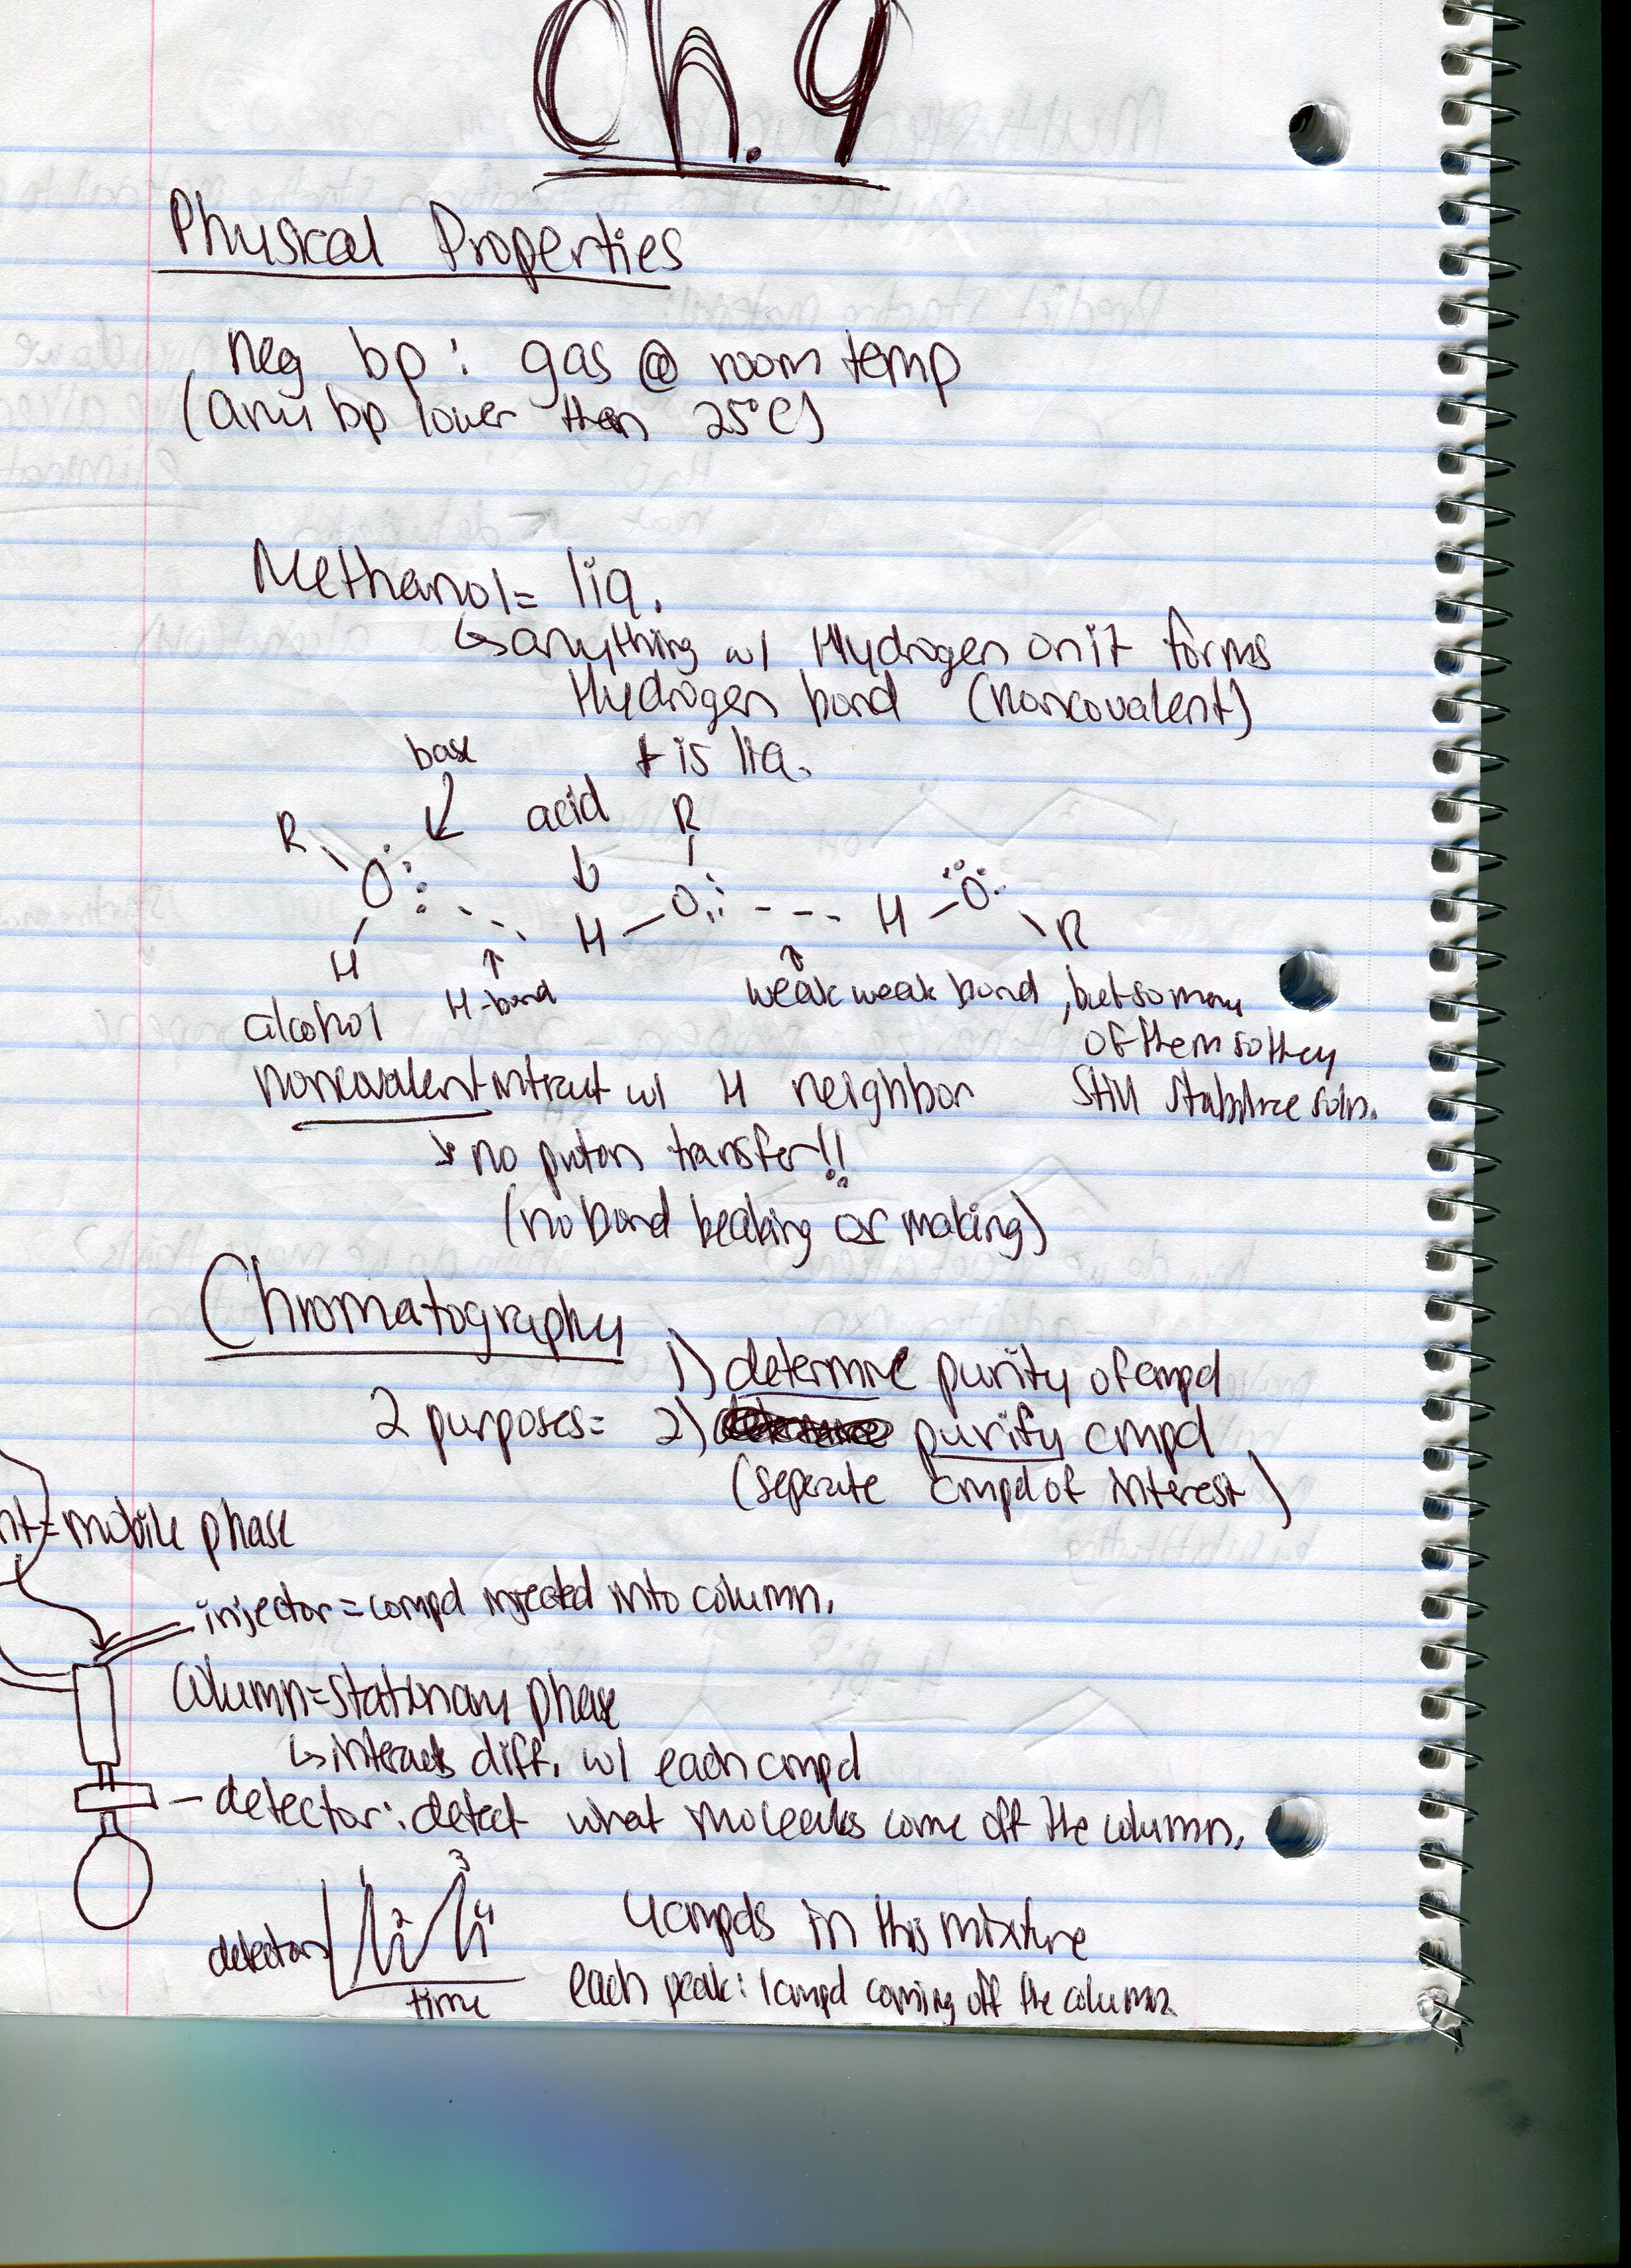 Ch. 9
Physical Properties
neg bp: gas @ room temp
(any bp lower then 25°C)
Methanol = liq.
↳ anything w/ Hydrogen on it forms
Hydrogen bond (noncovalent)
+ is liq.
base
acid
R
R
O
H
H
O
H
O
R
H-bond
weak weak bond, but so many
of them so they
still stabilize soln.
alcohol
noncovalent intract w/ H neighbor
↳ no proton transfer!!
(no bond beaking or making)
Chromatography
1) determine purity of cmpd
2 purposes = 2) purify cmpd
(seperate cmpd of interest)
nt = mobile phase
injector = compd injected into column.
Column = stationary phase
↳ interacts diff. w/ each cmpd
detector: detect what molecules come off the column.
1 2 3 4
detector
time
4 cmpds in this mixture
each peak: 1 cmpd coming off the column